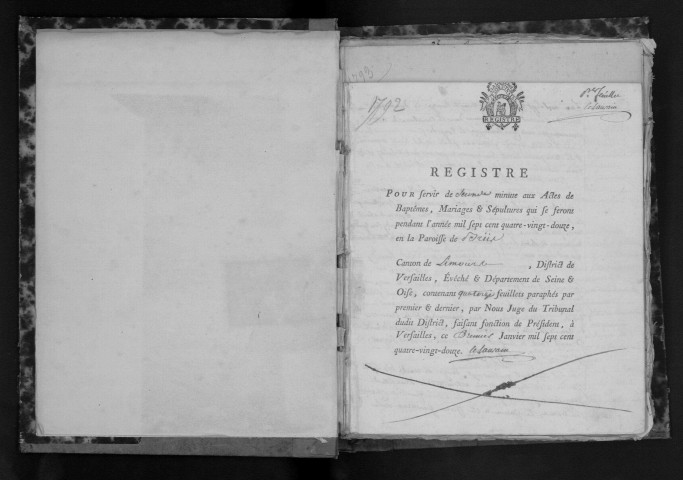 1793
1792
REGISTRE
Pr. feuillet
Lesauvin
REGISTRE
POUR servir de Seconde minute aux Actes de
Baptêmes, Mariages & Sépultures qui se feront
pendant l'année mil sept cent quatre-vingt-douze,
en la Paroisse de Briis
Canton de Limours, District de
Versailles, Évêché & Département de Seine &
Oise, contenant quatorze feuillets paraphés par
premier & dernier, par Nous Juge du Tribunal
dudit District, faisant fonction de Président, à
Versailles, ce Premier Janvier mil sept cent
quatre-vingt-douze. Lesauvin